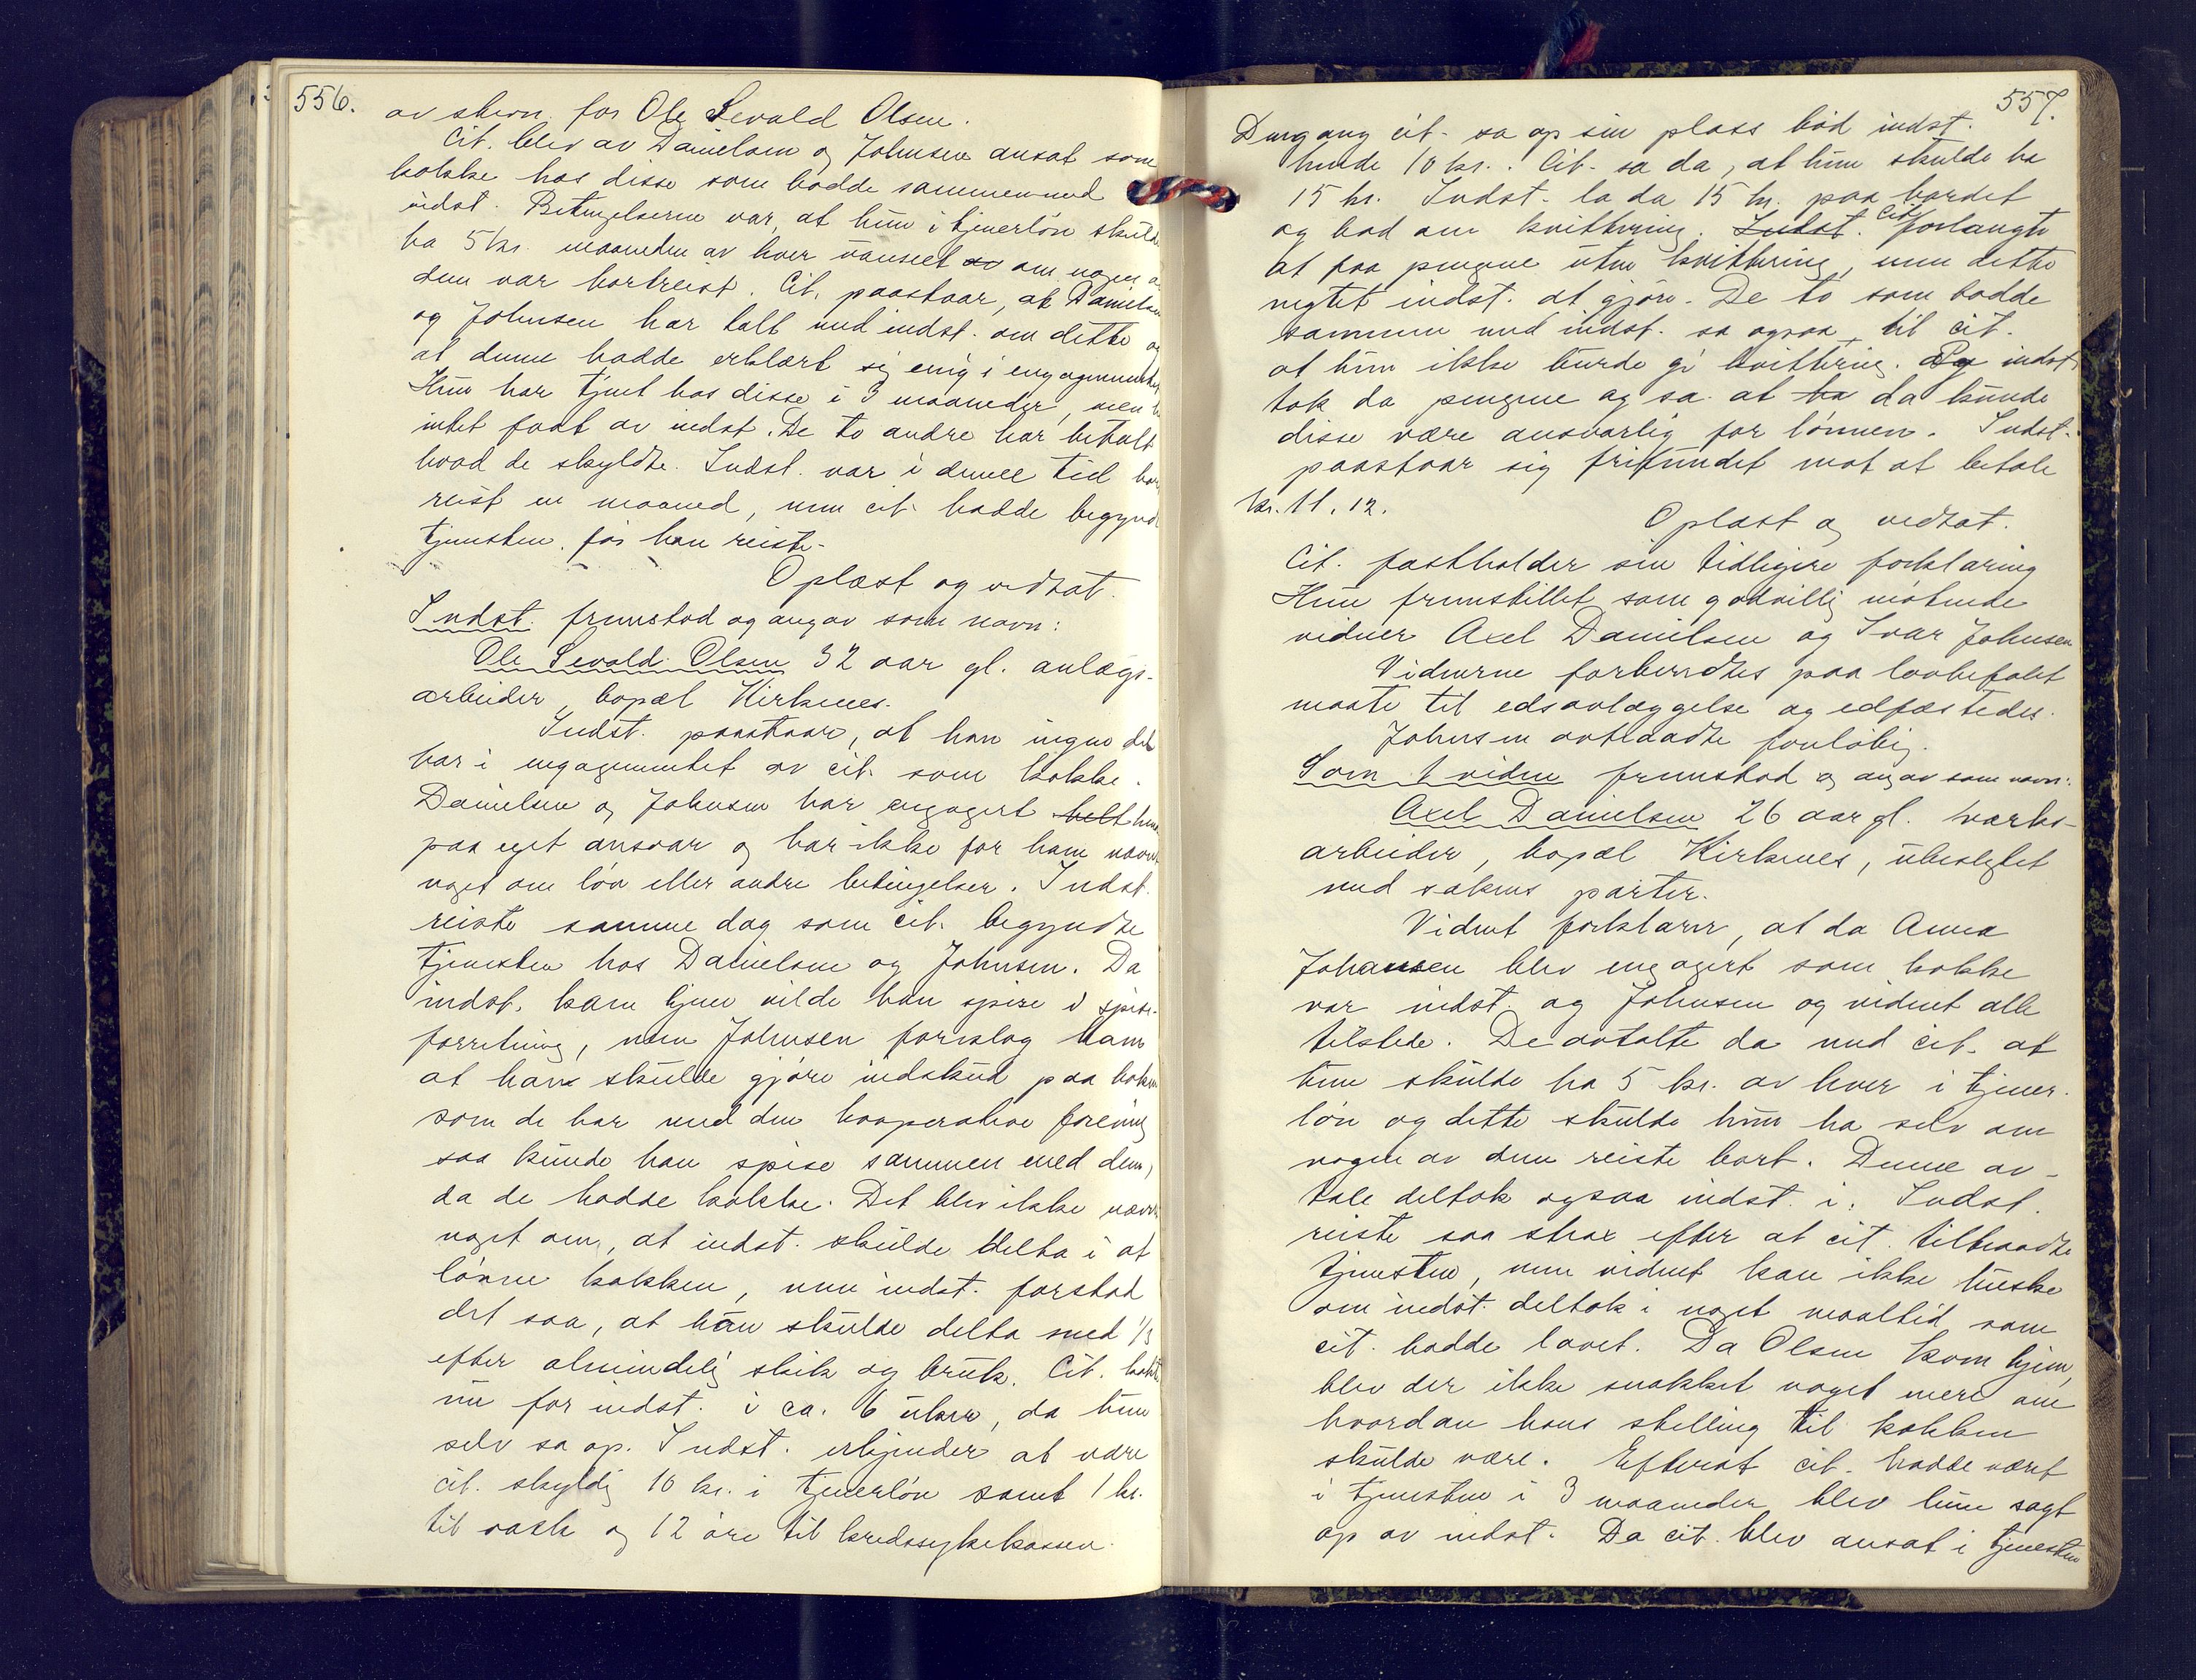 556.
av stevn. for Ole Sevald Olsen.
Cit. blev av Danielsen og Johnsen ansat som
kokke hos disse som bodde sammen med
indst. Betingelserne var, at hun i tjenerløn skulde
ha 5 kr. maaneden av hver uanseet av om nogen a
dem var bortreist. Cit. paastaar, at Danielsen
og Johnsen har talt med indst. om dette og
at denne hadde erklært sig enig i engagementet
Hun har tjent hos disse i 3 maaneder, men
intet faat av indst. De to andre har betalt
hvad de skyldte. Indst. var i denne tid bort
reist en maaned, men cit. hadde begyndt
tjenesten før han reiste.
Oplæst og vedtat.
Indst. fremstod og angav som navn:
Ole Sevald Olsen 32 aar gl. anlægs-
arbeider, bopæl Kirkenes.
Indst. paastaar, at han ingen del
har i engagementet av cit. som kokke.
Danielsen og Johnsen har engagert helt hende
paa eget ansvar og har ikke for ham nævnt
noget om løn eller andre betingelser. Indst.
reiste samme dag som cit. begyndte
tjenesten hos Danielsen og Johnsen. Da
indst. kom hjem vilde han spise i spise-
forretning, men Johnsen foreslog ham
at han skulde gjøre indskud paa boken
som de har med den kooperative forening
saa kunde han spise sammen med dem,
da de hadde kokke. Det blev ikke nævnt
noget om, at indst. skulde delta i at
lønne kokken, men indst. forstod
det saa, at han skulde delta med 1/3
efter almindelig skik og bruk. Cit. kokte
nu for indst. i ca. 6 uker, da hun
selv sa op. Indst. erkjender at være
cit. skyldig 10 kr. i tjenerløn samt 1 kr.
til vask og 12 øre til kredssykekassen.
557.
Dengang cit. sa op sin plass bød indst.
hende 10 kr. Cit. sa da, at hun skulde ha
15 kr. Indst. la da 15 kr. paa bordet
og bad om kvittering. Indst. Cit. forlangte
at faa pengene uten kvittering, men dette
negtet indst. at gjøre. De to som bodde
sammen med indst. sa ogsaa til cit.
at hun ikke burde gi kvittering. Da indst.
tok da pengene og sa at ha da kunde
disse være ansvarlig for lønnen. Indst.
paastaar sig frifundet mot at betale
kr. 11.12.
Oplæst og vedtat.
Cit. fastholder sin tidligere forklaring
Hun fremstillet som godvillig møtende
vidner Axel Danielsen og Ivar Johnsen
Vidnerne forberedtes paa lovbefalet
maate til edsavlæggelse og edfæstedes.
Johnsen avtraadte foreløbig.
Som 1 vidne fremstod og angav som navn:
Axel Danielsen 26 aar gl. verks-
arbeider, bopæl Kirkenes, ubeslegtet
med sakens parter.
Vidnet forklarer, at da Anna
Johansen blev engagert som kokke
var indst. og Johnsen og vidnet alle
tilstede. De avtalte da med cit. at
hun skulde ha 5 kr. av hver i tjener-
løn og dette skulde hun ha selv om
nogen av dem reiste bort. Denne av-
tale deltok ogsaa indst. i. Indst.
reiste saa strax efter at cit. tiltraadte
tjenesten, men vidnet kan ikke huske
om indst. deltok i noget maaltid som
cit. hadde lavet. Da Olsen kom hjem,
blev der ikke snakket noget mere om
hvordan hans stelling til kokken
skulde være. Efterat cit. hadde været
i tjenesten i 3 maaneder blev hun sagt
op av indst. Da cit. blev ansat i tjenesten